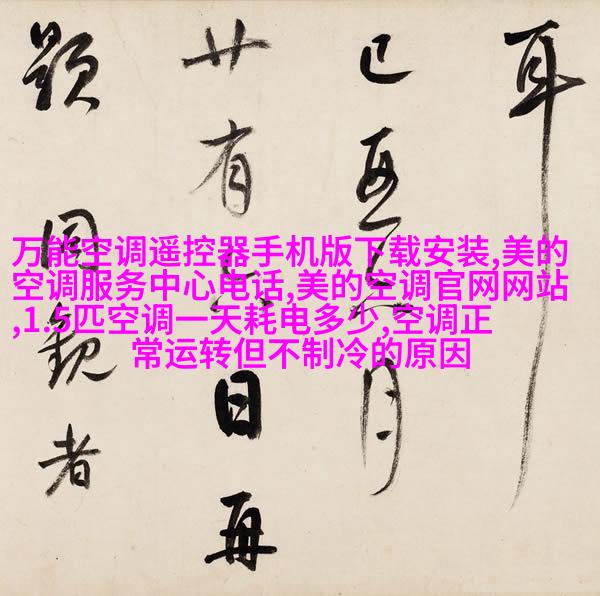 耳
已月
廿有日再
題同觀者
万能空调遥控器手机版下载安装,美的
空调服务中心电话,美的空调官网网站
,1.5匹空调一天耗电多少,空调正
常运转但不制冷的原因